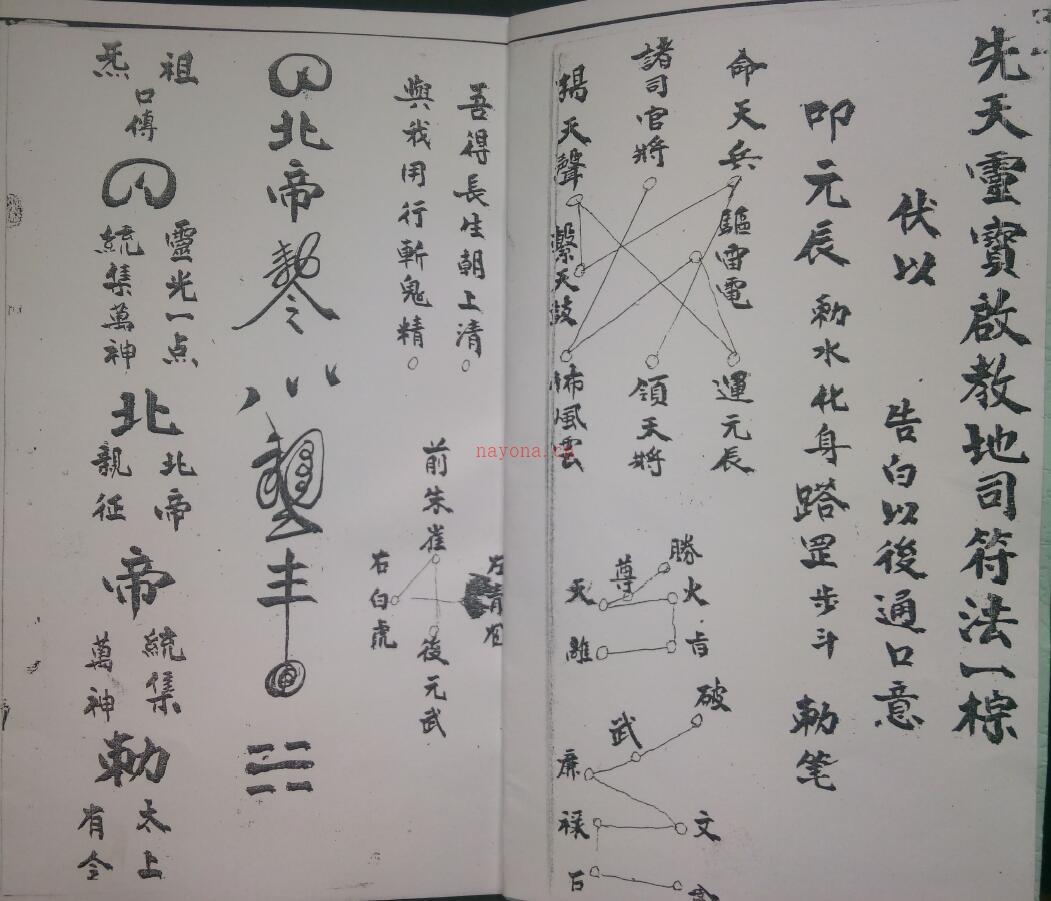 先天靈寶啟教地司符法一棕
伏以 告白以後通口意
叩元辰 勅水化身踏罡步斗 勅笔
命天兵
驅雷電
運元辰
諸司官將
領天將
揚天聲
擊天鼓
佈風雲
勝
尊
天
火
離
破
武
廉
禄
文
吾得長生朝上清
與我用行斬鬼精
前朱雀
右白虎
後元武
北帝
勅令
祖
炁
口傳
靈光一点
統集萬神
北
北帝
親征
帝
統集
萬神
勅
太上
有令
nayona.cn